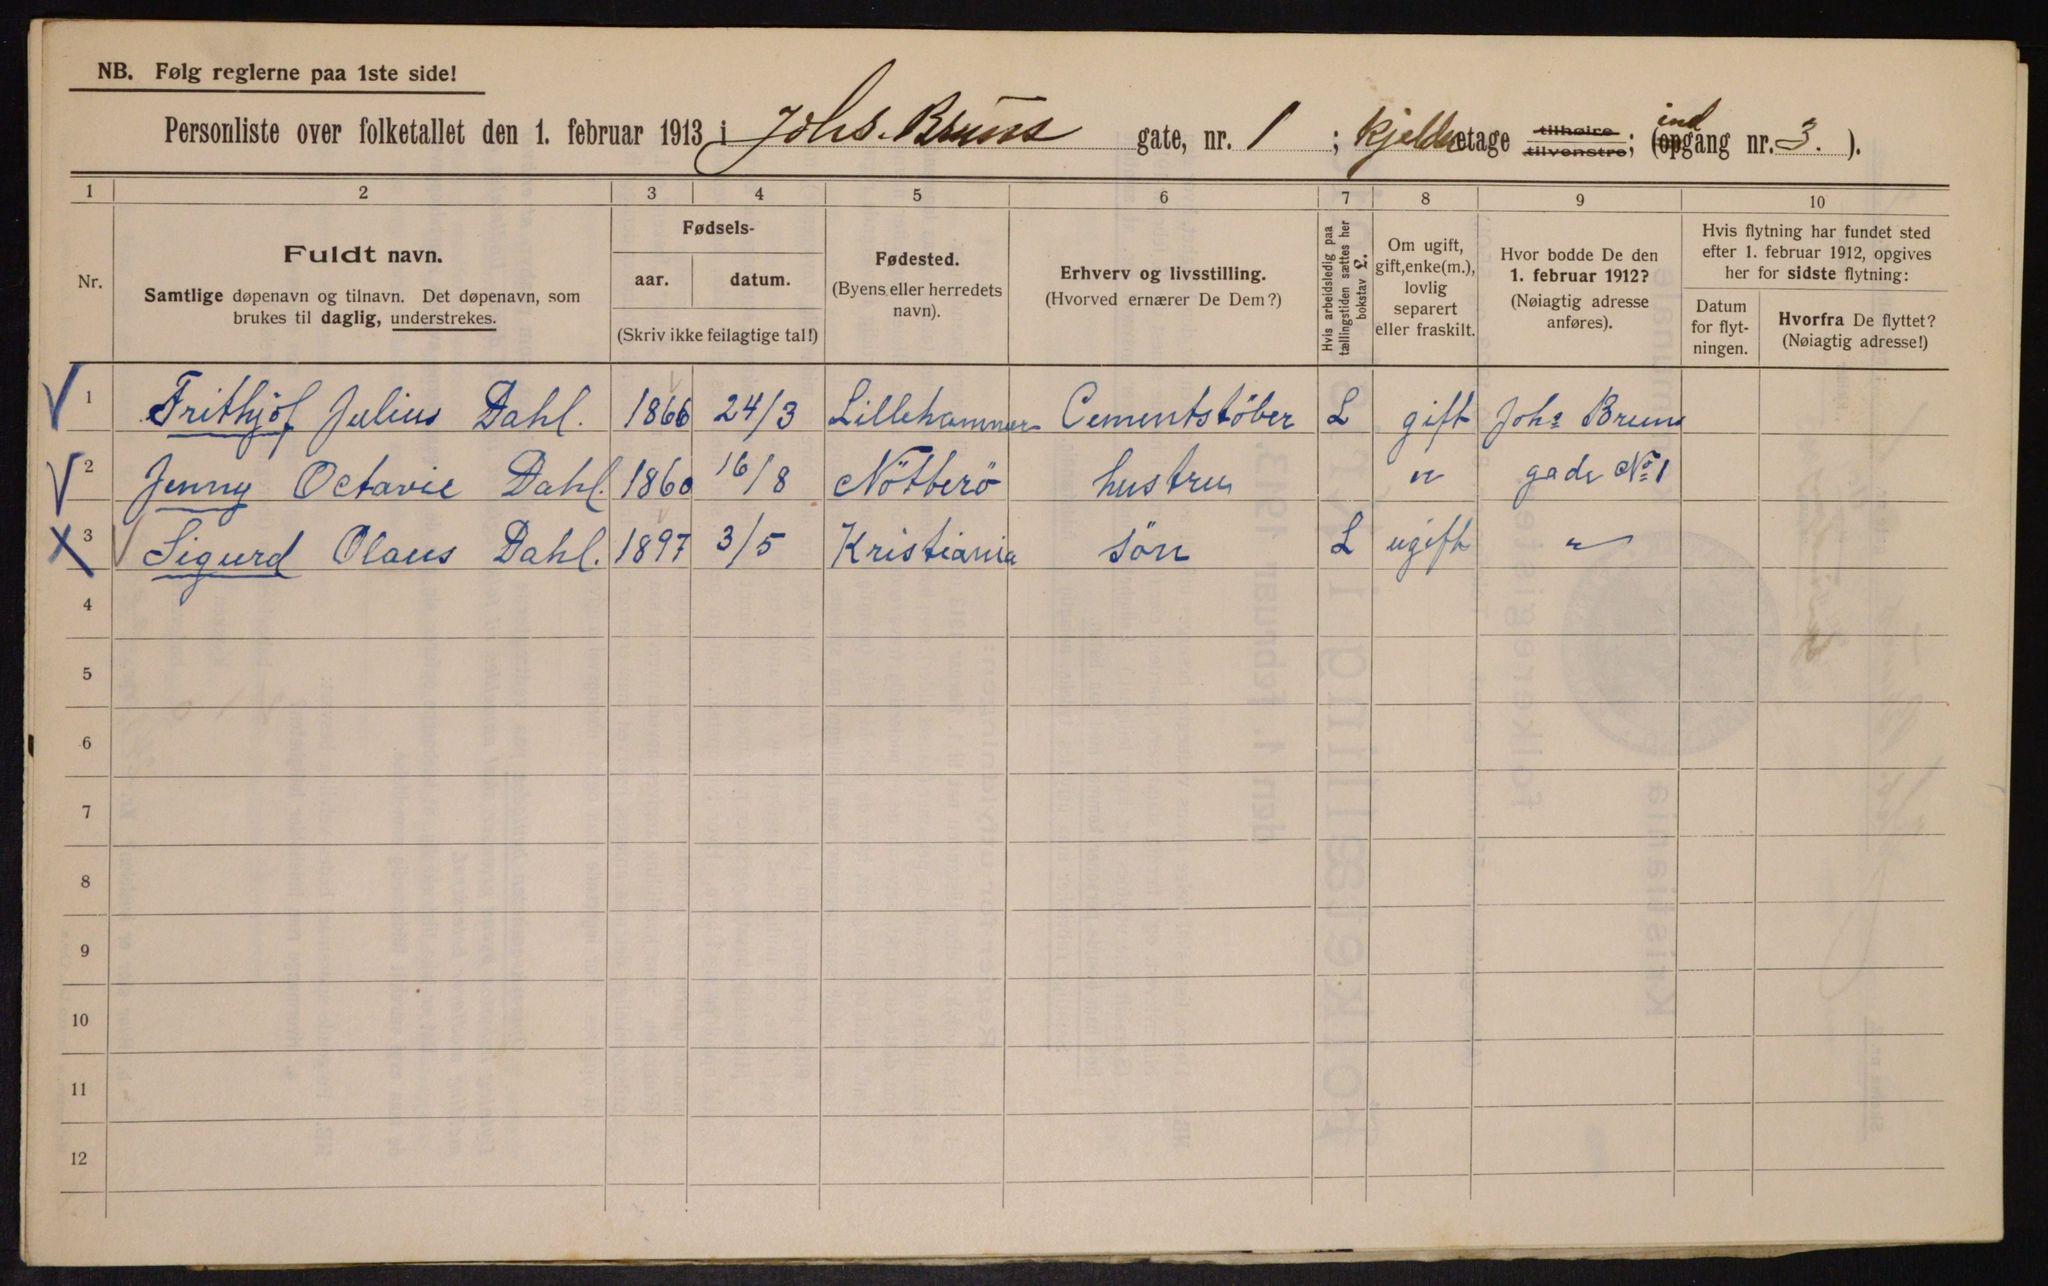 NB. Følg reglerne paa 1ste side!
Personliste over folketallet den 1. februar 1913 i Johs. Bruns gate, nr. 1 ; Kjelderetage tilhøire tilvenstre; (opgang ind nr. 3. ).
1 2 3 4 5 6 7 8 9 10
Nr.
Fuldt navn.
Samtlige døpenavn og tilnavn. Det døpenavn, som
brukes til daglig, understrekes.
Fødsels-
aar. datum.
(Skriv ikke feilagtige tal!)
Fødested.
(Byens eller herredets
navn).
Erhverv og livsstilling.
(Hvorved ernærer De Dem?)
Hvis arbeidsledig paa
tællingstiden sættes her
bokstav L.
Om ugift,
gift, enke(m.),
lovlig
separert
eller fraskilt.
Hvor bodde De den
1. februar 1912?
(Nøiagtig adresse
anføres).
Hvis flytning har fundet sted
efter 1. februar 1912, opgives
her for sidste flytning:
Datum
for flyt-
ningen.
Hvorfra De flyttet?
(Nøiagtig adresse!)
1 Frithjof Julius Dahl. 1866 24/3 Lillehammer Cementstöber L gift Johs Bruns
2 Jenny Octavie Dahl. 1860 16/8 Nötberö hustru " gade No 1
3 Sigurd Olaus Dahl. 1897 3/5 Kristiania sön L ugift "
4
5
6
7
8
9
10
11
12